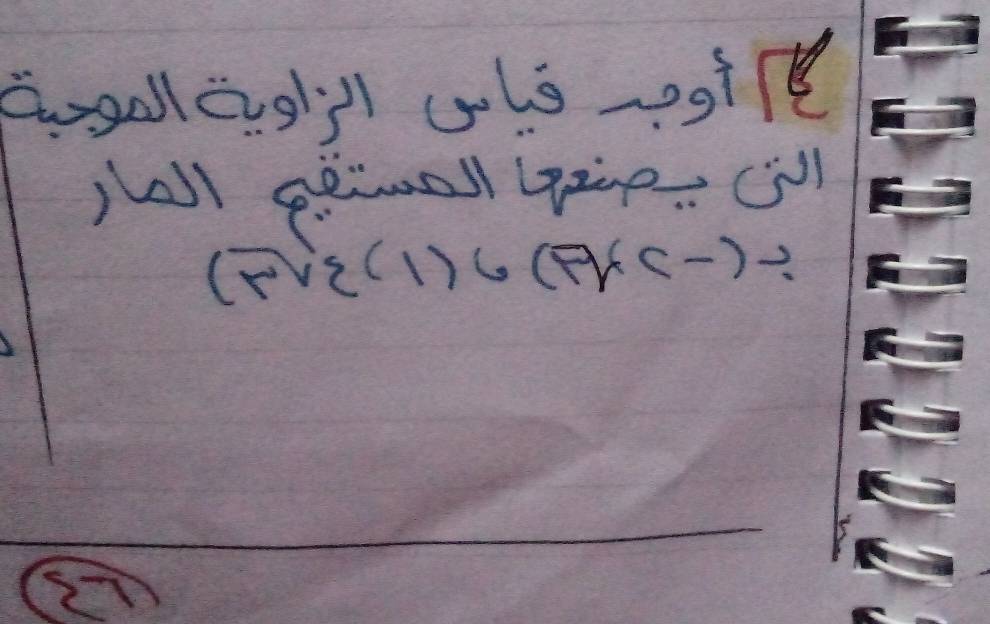 ٢٤ أوجد قياس الزاوية الموجبة
التى يصنعها المستقيم المار
بـ (-٢، √٣) ، (١، ٤√٣)
٤٦